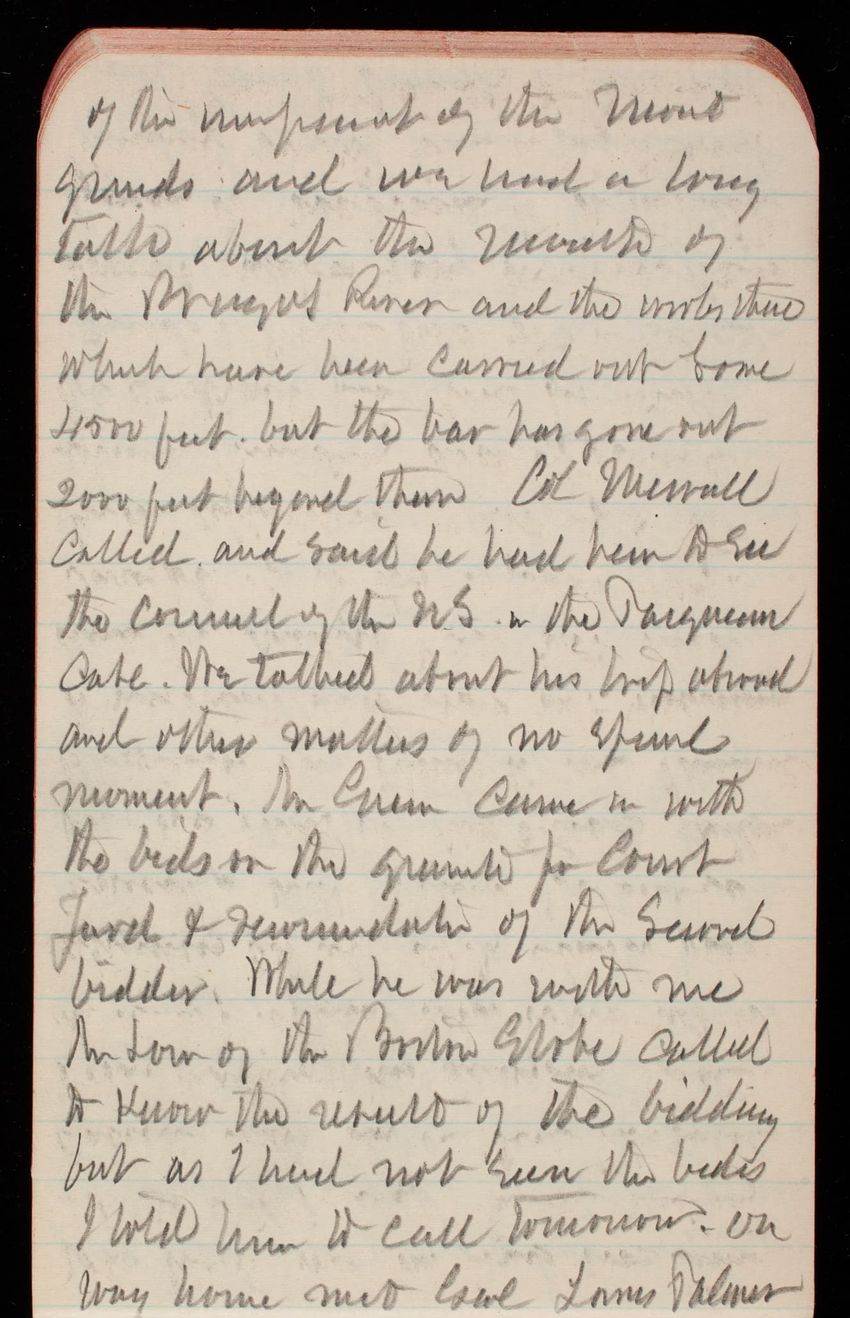 of the of the Mont
grounds and we had a long
talk about the mouth of
the Brazos River and the works there
which have been carried out some
4500 feet. but the bar has gone out
2000 feet beyond them Col Merrall
Called. and said he had been to see
the Counsel of the in the
Case. We talked about his trip abroad
and other matters of no special
moment. Mr Green came in with
the beds on the granite for Court
Yard & recommendation of the second
bidder. While he was with me
Mr Low of the Boston Globe called
to know the result of the bidding
but as I had not seen the beds
I told him to call tomorrow. on
way home met Lewis Palmer